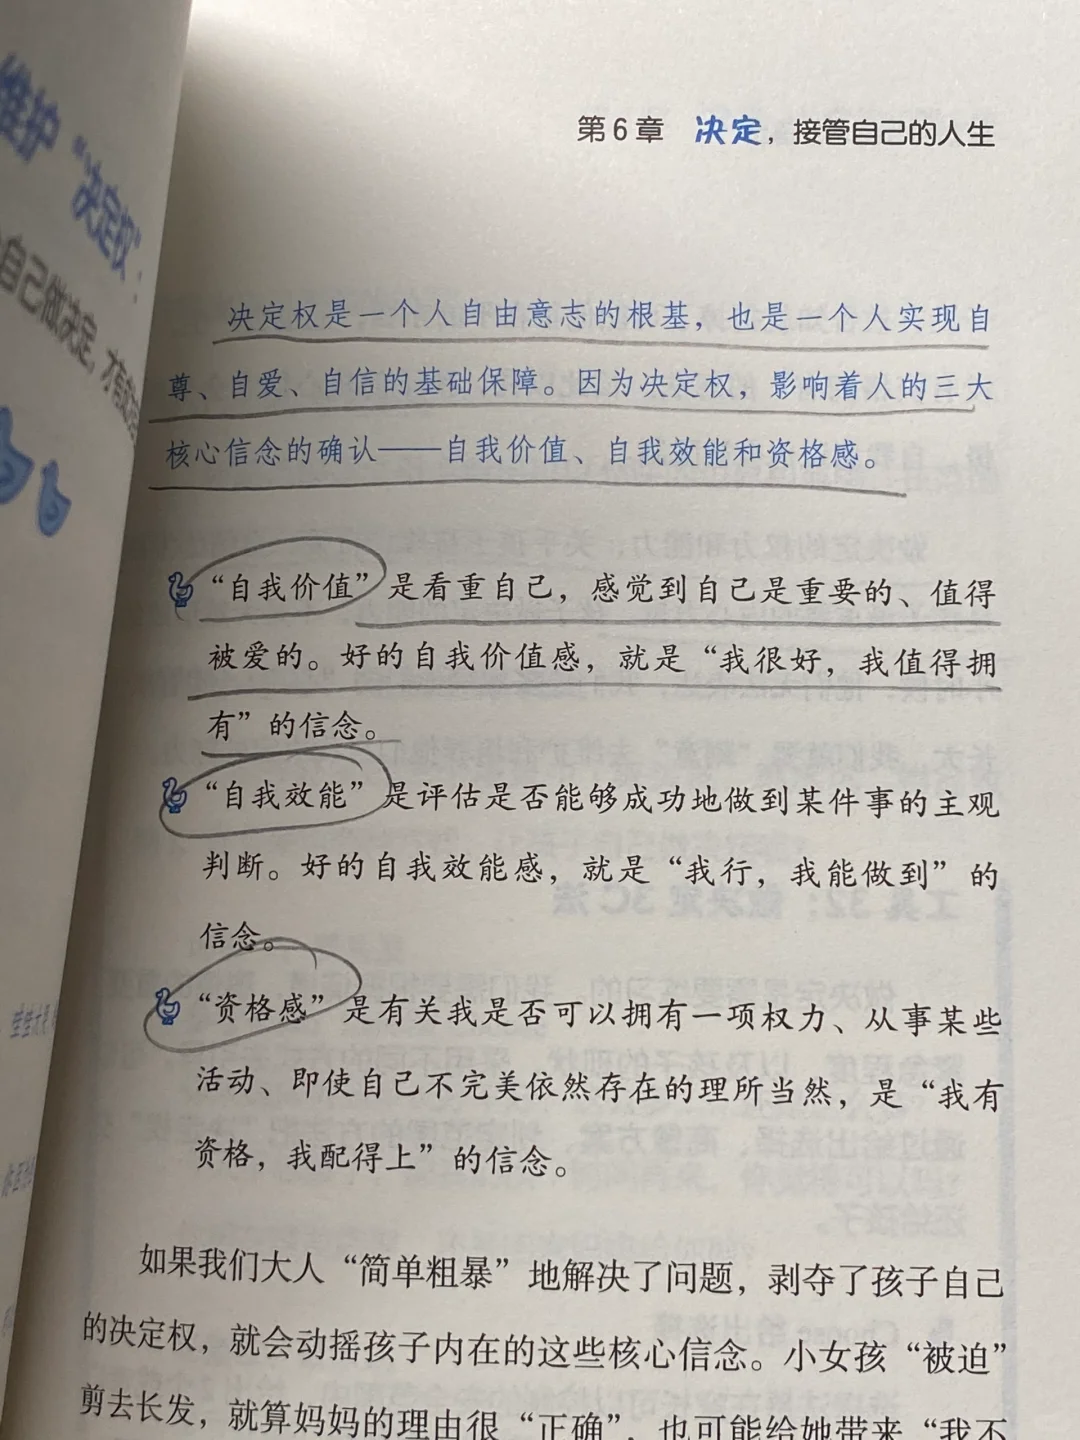 维护“决定权”：
自己做决定，才有
第6章 决定，接管自己的人生
决定权是一个人自由意志的根基，也是一个人实现自
尊、自爱、自信的基础保障。因为决定权，影响着人的三大
核心信念的确认——自我价值、自我效能和资格感。
“自我价值”是看重自己，感觉到自己是重要的、值得
被爱的。好的自我价值感，就是“我很好，我值得拥
有”的信念。
“自我效能”是评估是否能够成功地做到某件事的主观
判断。好的自我效能感，就是“我行，我能做到”的
信念。
“资格感”是有关我是否可以拥有一项权力、从事某些
活动、即使自己不完美依然存在的理所当然，是“我有
资格，我配得上”的信念。
如果我们大人“简单粗暴”地解决了问题，剥夺了孩子自己
的决定权，就会动摇孩子内在的这些核心信念。小女孩“被迫”
剪去长发，就算妈妈的理由很“正确”，也可能给她带来“我不